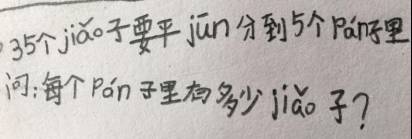 35个jiǎo子要平jūn分到5个Pán子里
问:每个Pán子里有多少jiǎo子?